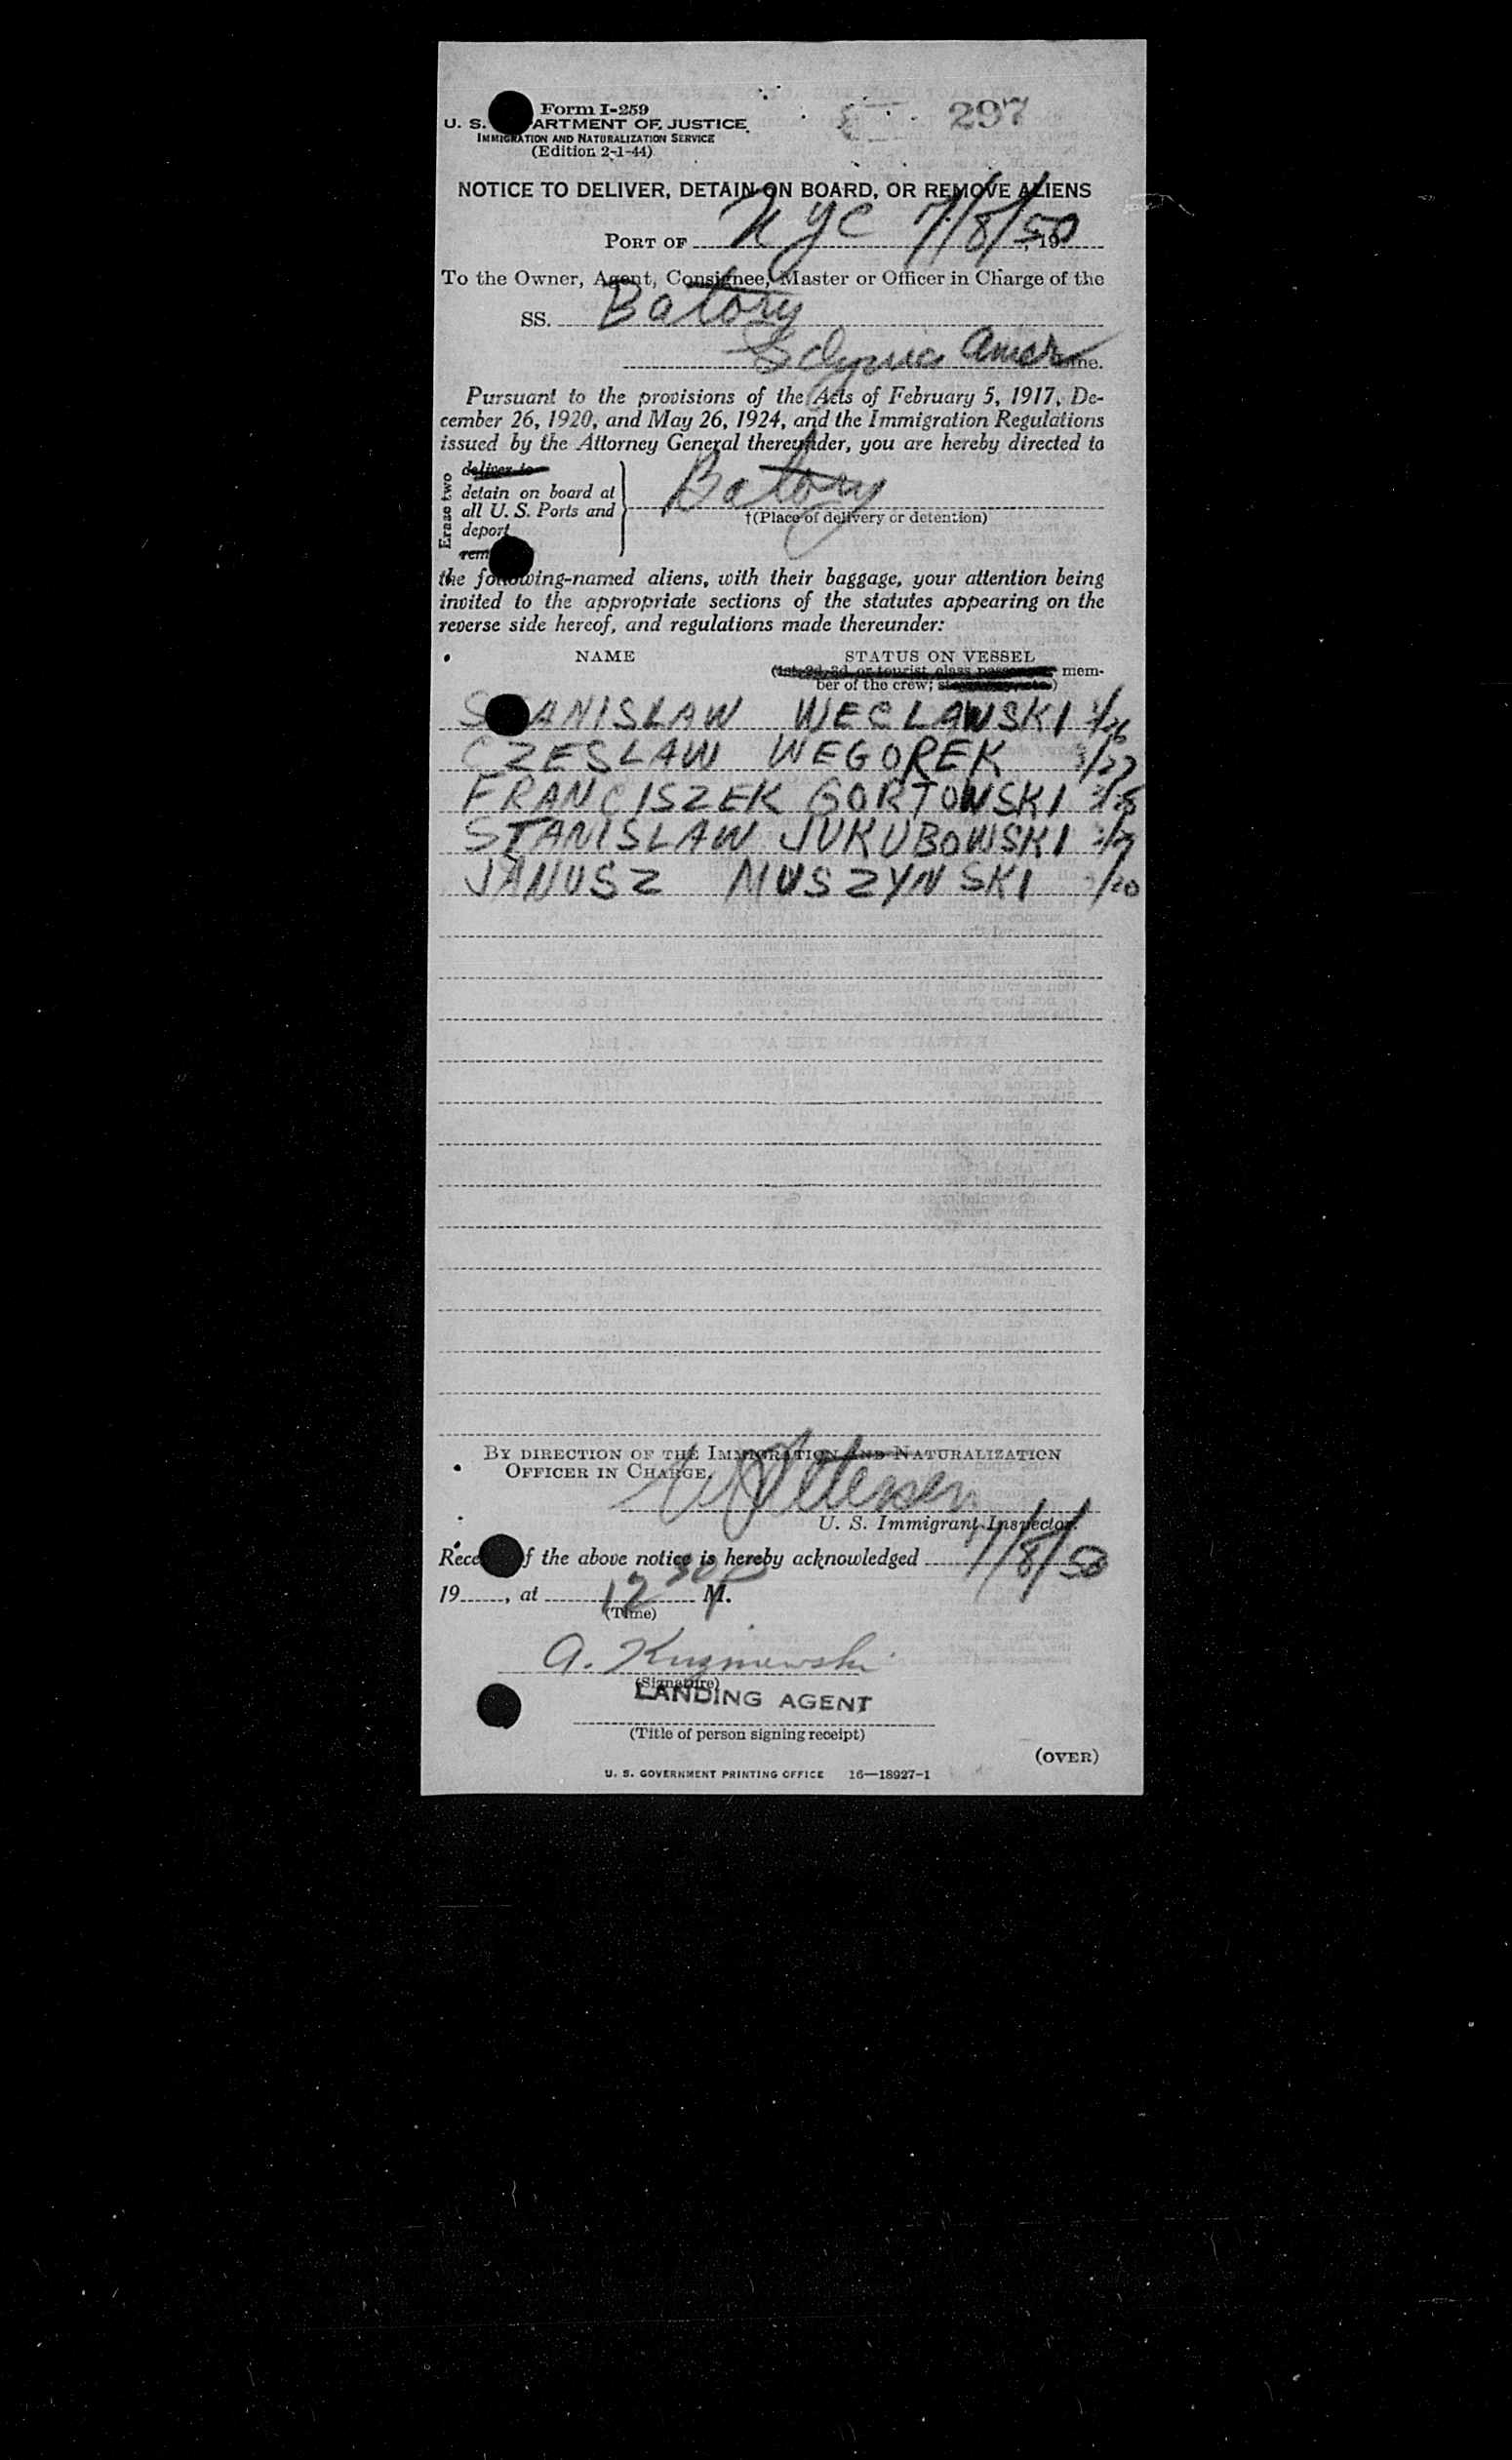 Form I-259
297
U. S. ARTMENT OF JUSTICE
IMMIGRATION AND NATURALIZATION SERVICE
(Edition 2-1-44)
NOTICE TO DELIVER, DETAIN ON BOARD, OR REMOVE ALIENS
PORT OF NYC 7/8/50, 19
To the Owner, Agent, Consignee, Master or Officer in Charge of the
SS. Batory
Gdynia Amer Line.
Pursuant to the provisions of the Acts of February 5, 1917, De-
cember 26, 1920, and May 26, 1924, and the Immigration Regulations
issued by the Attorney General thereunder, you are hereby directed to
Erase two
deliver to
detain on board at
all U. S. Ports and
deport
rem
Batory
†(Place of delivery or detention)
the following-named aliens, with their baggage, your attention being
invited to the appropriate sections of the statutes appearing on the
reverse side hereof, and regulations made thereunder:
NAME STATUS ON VESSEL
(1st, 2d, 3d, or tourist class passenger mem-
ber of the crew; )
STANISLAW WECLAWSKI /26
CZESLAW WEGOREK /27
FRANCISZEK GORTOWSKI
STANISLAW JUKUBOWSKI
JANUSZ MUSZYNSKI /20
BY DIRECTION OF THE IMMIGRATION AND NATURALIZATION
OFFICER IN CHARGE.
Petersen
U. S. Immigrant Inspector.
Rece f the above notice is hereby acknowledged 7/8/50
19, at 12 30 P M.
(Time)
A. Kuzniewski
(Signature)
LANDING AGENT
(Title of person signing receipt)
(OVER)
U. S. GOVERNMENT PRINTING OFFICE 16—18927-1